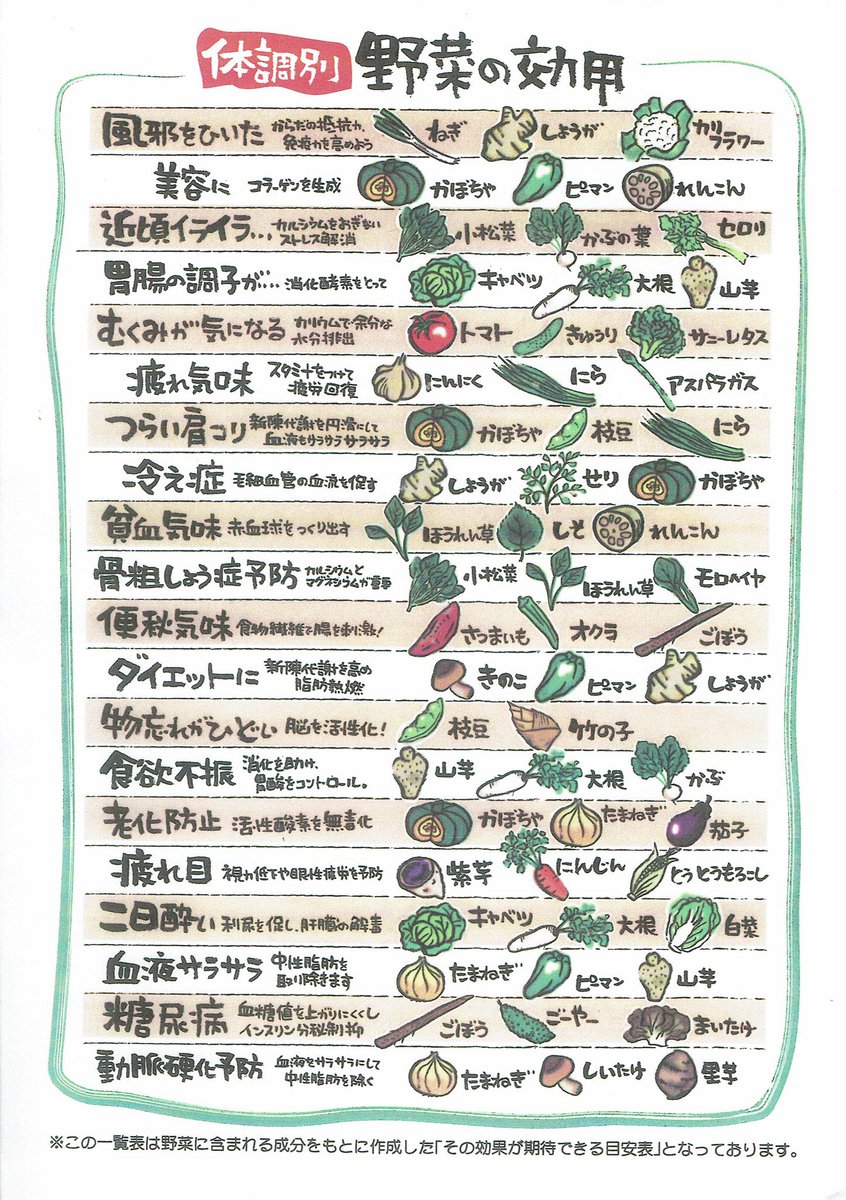 体調別 野菜の効用
風邪をひいた からだの抵抗力、免疫力を高めよう ねぎ しょうが カリフラワー
美容に コラーゲンを生成 かぼちゃ ピーマン れんこん
近頃イライラ… カルシウムをおぎないストレス解消 小松菜 かぶの葉 セロリ
胃腸の調子が… 消化酵素をとって キャベツ 大根 山芋
むくみが気になる カリウムで余分な水分排出 トマト きゅうり サニーレタス
疲れ気味 スタミナをつけて疲労回復 にんにく にら アスパラガス
つらい肩コリ 新陳代謝を円滑にして血液をサラサラサラサラ かぼちゃ 枝豆 にら
冷え症 毛細血管の血流を促す しょうが せり かぼちゃ
貧血気味 赤血球をつくり出す ほうれん草 しそ れんこん
骨粗しょう症予防 カルシウムとマグネシウムが豊富 小松菜 ほうれん草 モロヘイヤ
便秘気味 食物繊維で腸を刺激! さつまいも オクラ ごぼう
ダイエットに 新陳代謝を高め脂肪熱燃 きのこ ピーマン しょうが
物忘れがひどい 脳を活性化! 枝豆 竹の子
食欲不振 消化を助け、胃酸をコントロール。 山芋 大根 かぶ
老化防止 活性酸素を無毒化 かぼちゃ たまねぎ 茄子
疲れ目 視力低下や眼性疲労を予防 紫芋 にんじん とうとうもろこし
二日酔い 利尿を促し、肝臓の解毒 キャベツ 大根 白菜
血液サラサラ 中性脂肪を取り除きます たまねぎ ピーマン 山芋
糖尿病 血糖値を上がりにくくしインスリン分秘制抑 ごぼう ごーやー まいたけ
動脈硬化予防 血液をサラサラにして中性脂肪を除く たまねぎ しいたけ 里芋
※この一覧表は野菜に含まれる成分をもとに作成した「その効果が期待できる目安表」となっております。